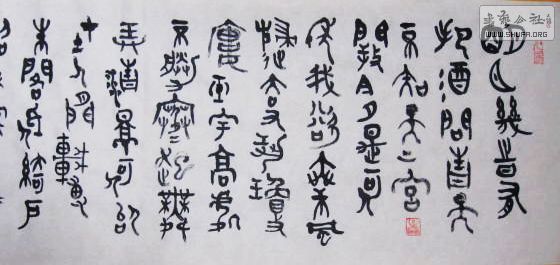 明月幾時有
把酒問青天
不知天上宮
闕今夕是何
年我欲乘風
歸去又恐瓊
樓玉宇高處
不勝寒起舞
弄清影何似
在人間轉
朱閣低綺戶
WWW.SHUFA.ORG